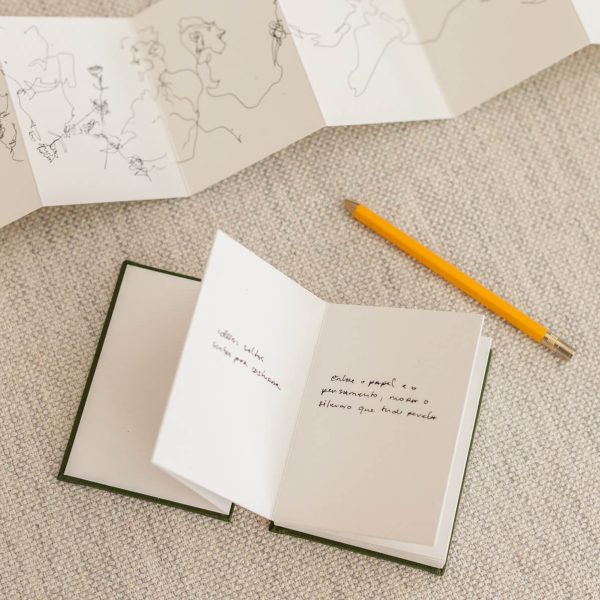 ideias soltas
sonhos para costurar
Entre o papel e o
pensamento, mora o
silêncio que tudo revela